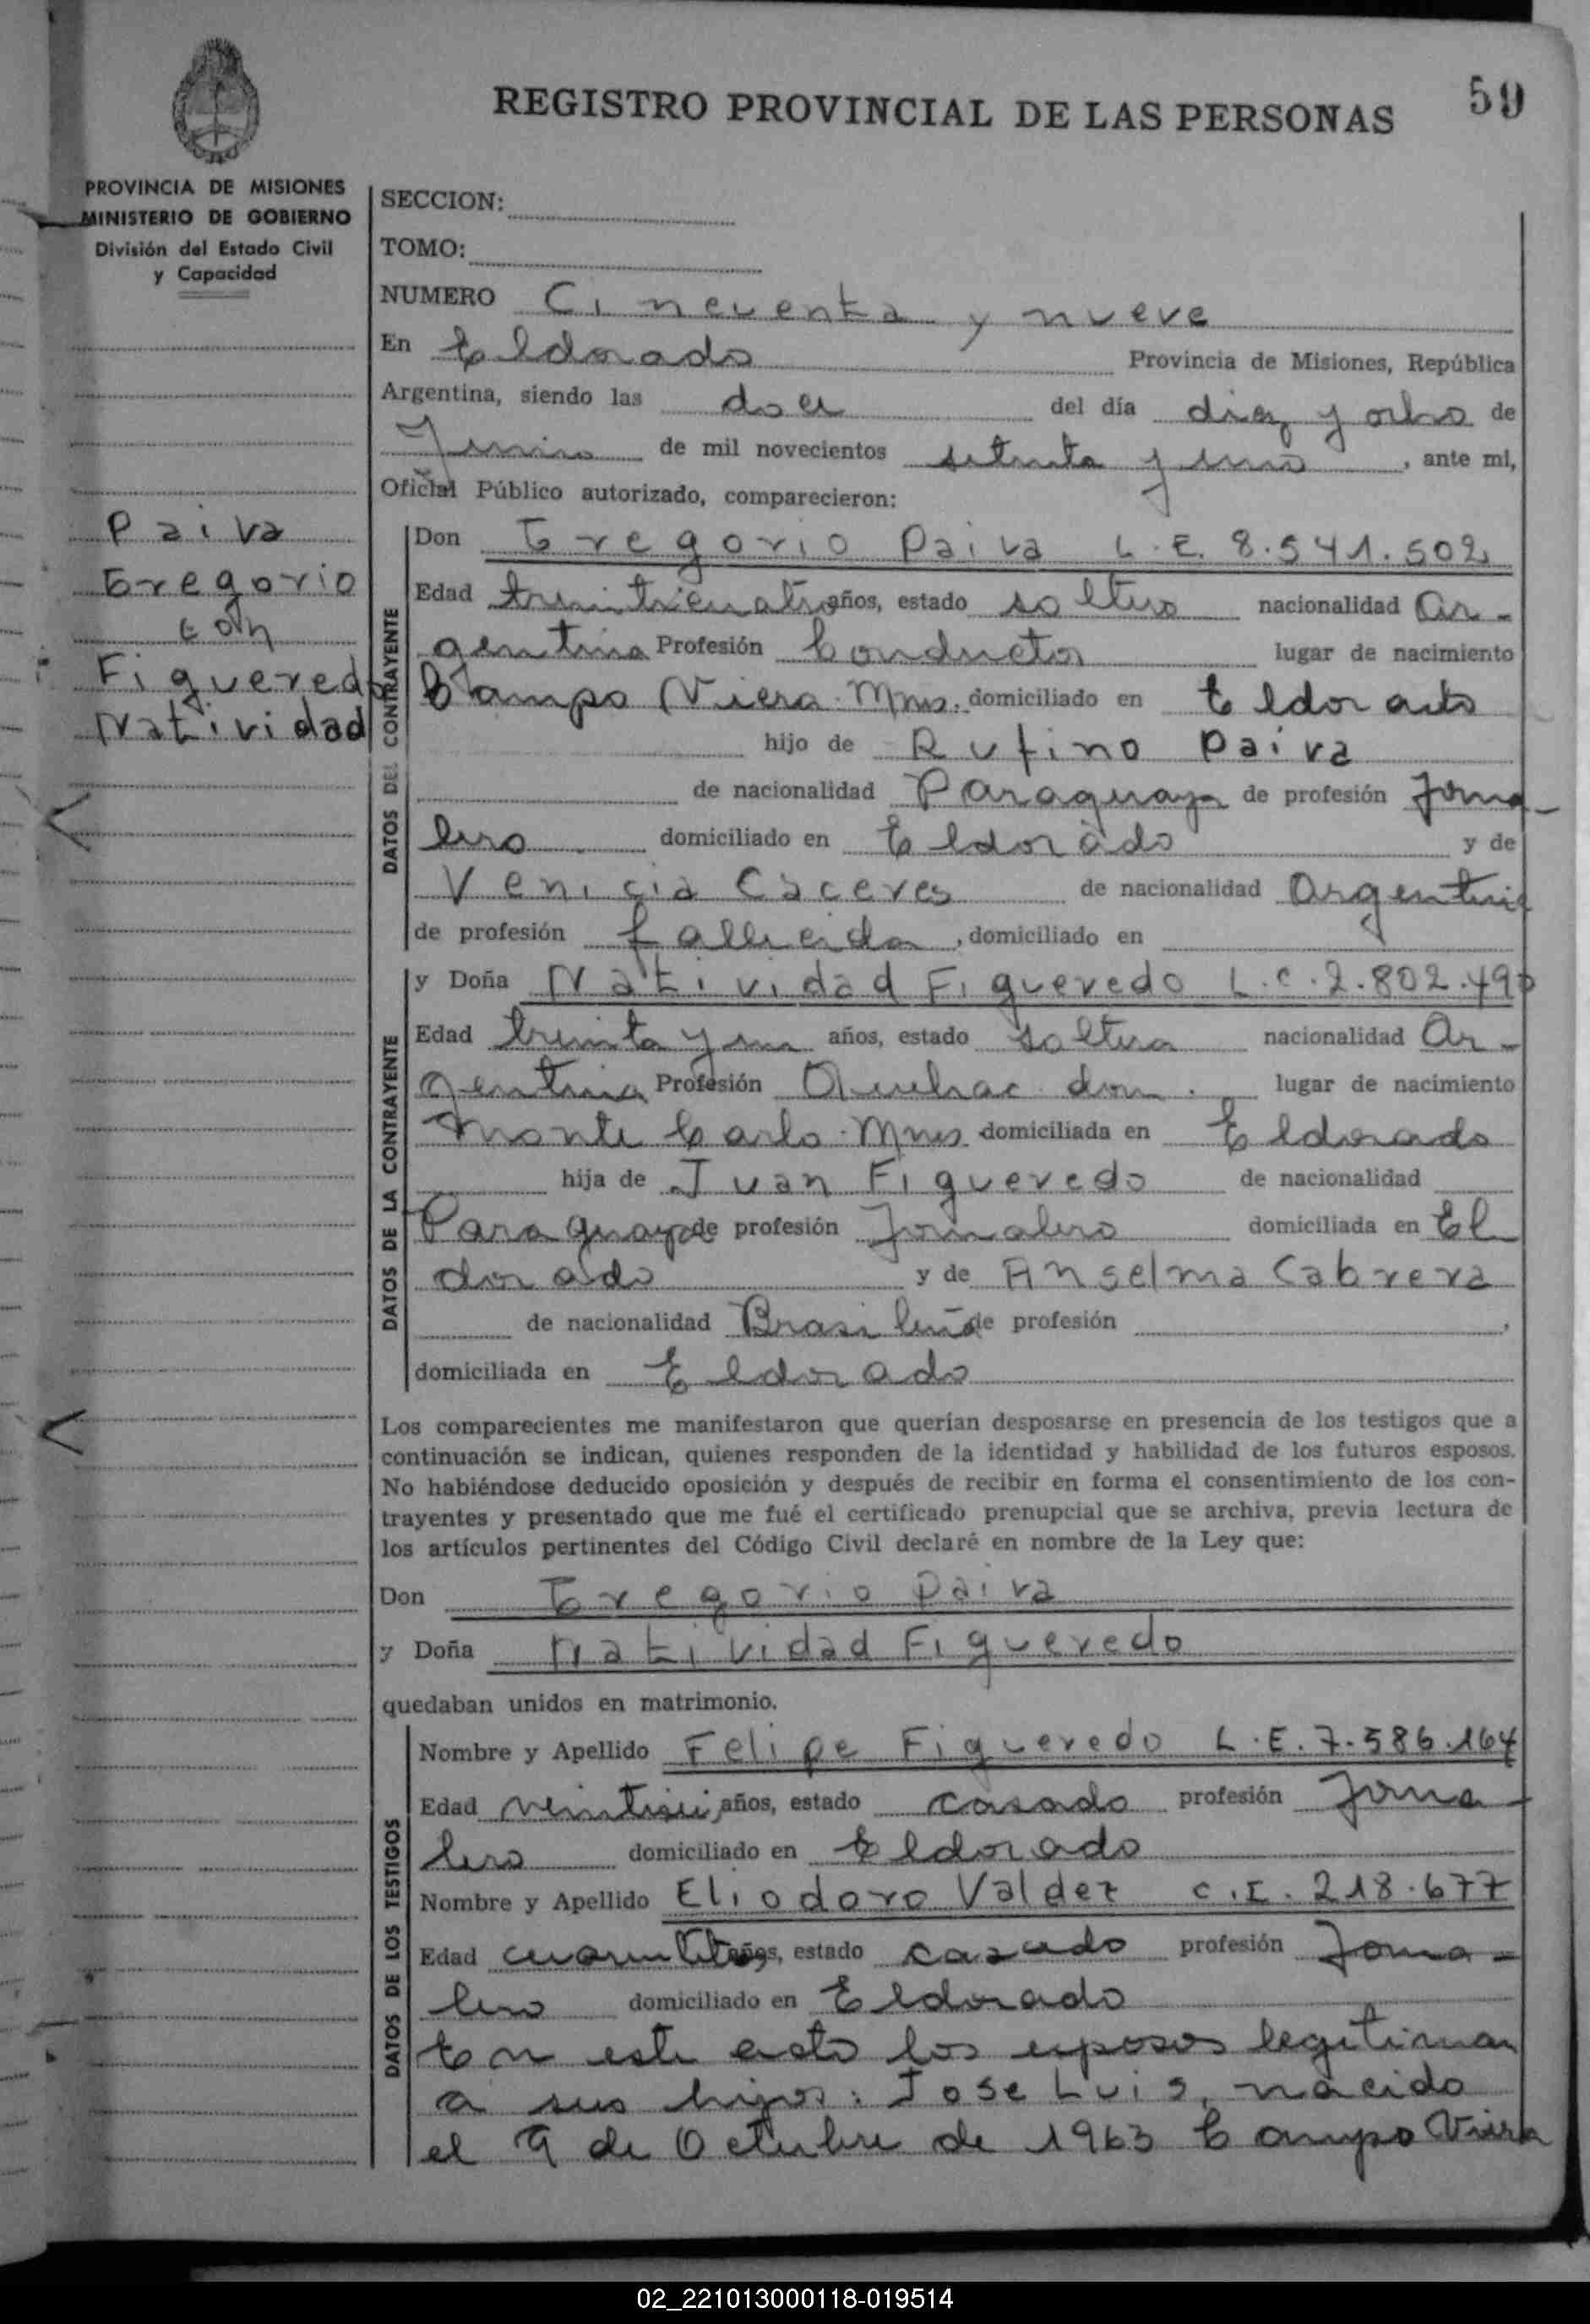 59
REGISTRO PROVINCIAL DE LAS PERSONAS
PROVINCIA DE MISIONES
MINISTERIO DE GOBIERNO
División del Estado Civil
y Capacidad
Paiva
Gregorio
con
Figueredo
Natividad
SECCION:
TOMO:
NUMERO Cincuenta y nueve
En Eldorado Provincia de Misiones, República
Argentina, siendo las doce del día diez y ocho de
Junio de mil novecientos setenta y uno, ante mi,
Oficial Público autorizado, comparecieron:
DATOS DEL CONTRAYENTE
Don Gregorio Paiva L.E. 8.541.502
Edad treinticuatro años, estado soltero nacionalidad Ar-
gentina Profesión Conductor lugar de nacimiento
Campo Viera. Mnes. domiciliado en Eldorado
hijo de Rufino Paiva
de nacionalidad Paraguaya de profesión Jorna-
lero domiciliado en Eldorado y de
Venicia Caceres de nacionalidad Argentina
de profesión fallecida, domiciliado en
DATOS DE LA CONTRAYENTE
y Doña Natividad Figueredo L.C. 2.802.490
Edad treinta y un años, estado soltera nacionalidad Ar-
gentina Profesión Quehac. dom. lugar de nacimiento
Monte Carlo. Mnes domiciliada en Eldorado
hija de Juan Figueredo de nacionalidad
Paraguaya de profesión Jornalero domiciliada en El
dorado y de Anselma Cabrera
de nacionalidad Brasileña de profesión ,
domiciliada en Eldorado
Los comparecientes me manifestaron que querían desposarse en presencia de los testigos que a
continuación se indican, quienes responden de la identidad y habilidad de los futuros esposos.
No habiéndose deducido oposición y después de recibir en forma el consentimiento de los con-
trayentes y presentado que me fué el certificado prenupcial que se archiva, previa lectura de
los artículos pertinentes del Código Civil declaré en nombre de la Ley que:
Don Gregorio Paiva
y Doña Natividad Figueredo
quedaban unidos en matrimonio.
DATOS DE LOS TESTIGOS
Nombre y Apellido Felipe Figueredo L.E. 7.586.164
Edad años, estado casado profesión Jorna-
lero domiciliado en Eldorado
Nombre y Apellido Eliodoro Valdez C.I. 218.677
Edad años, estado casado profesión Jorna-
lero domiciliado en Eldorado
En este acto los esposos legitiman
a sus hijos: Jose Luis, nacido
el 9 de Octubre de 1963 Campo Viera
02_221013000118-019514